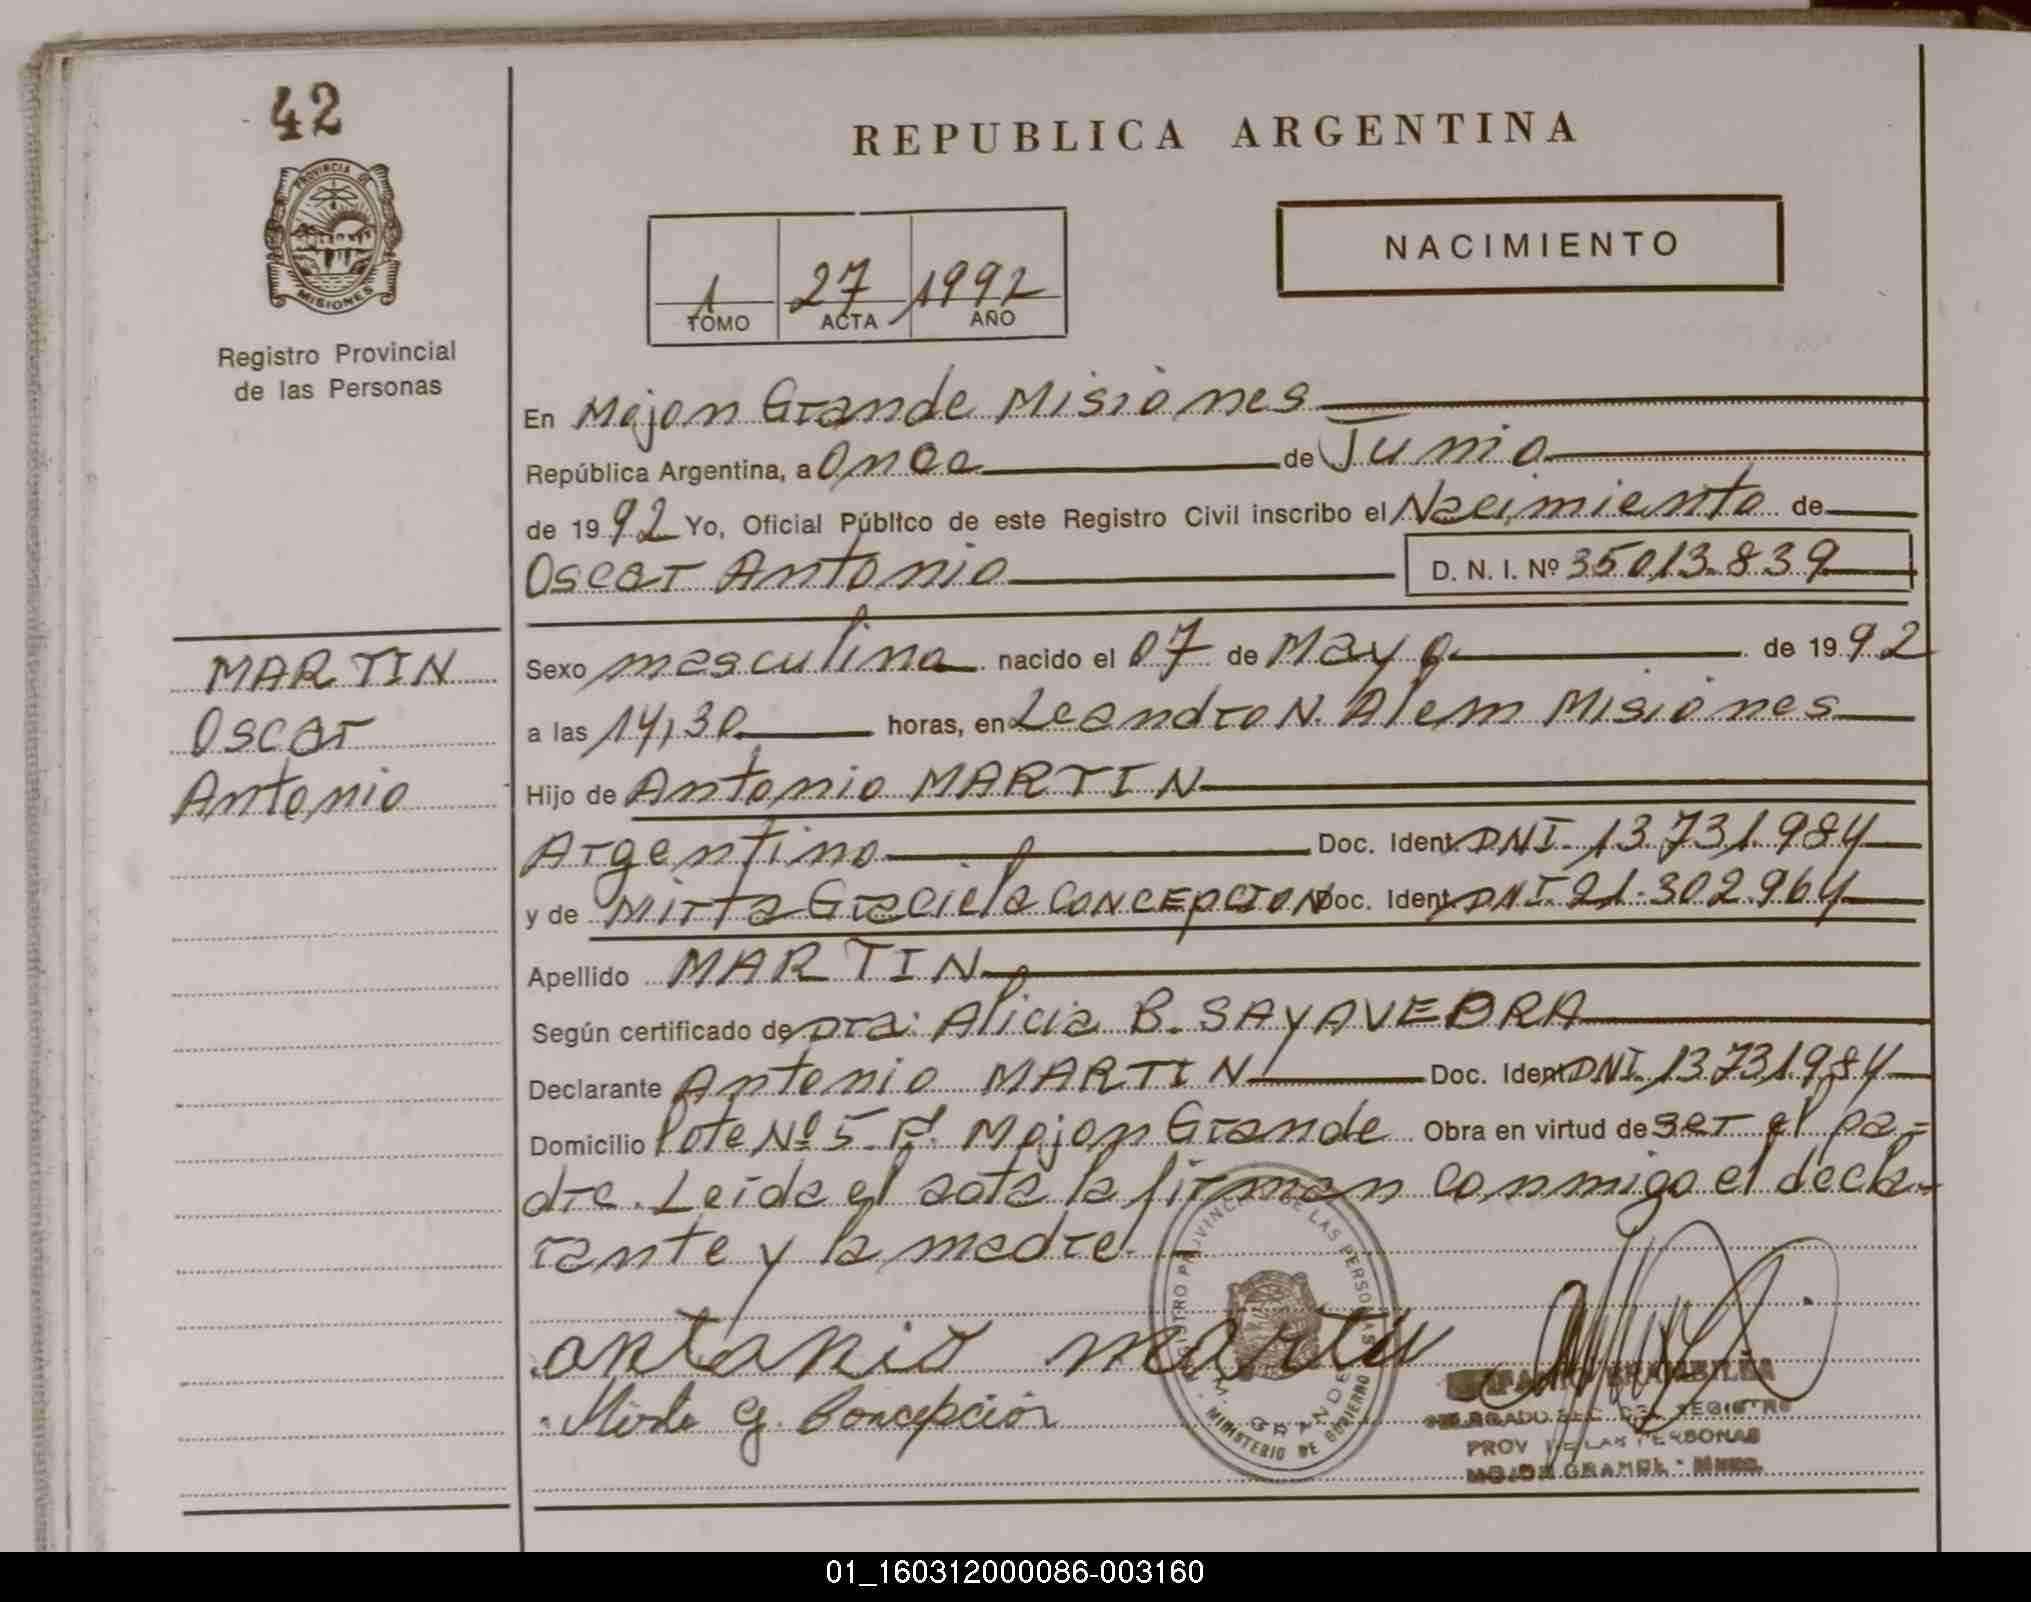 42
PROVINCIA DE
MISIONES
Registro Provincial
de las Personas
REPUBLICA ARGENTINA
NACIMIENTO
1 27 1992
TOMO ACTA AÑO
En Mojon Grande Misiones
República Argentina, a Once de Junio
de 1992 Yo, Oficial Público de este Registro Civil inscribo el Nacimiento de
Oscar Antonio D. N. I. Nº 35.013.839
MARTIN
Oscar
Antonio
Sexo masculino nacido el 07 de Mayo de 1992
a las 14,30 horas, en Leandro N. Alem Misiones
Hijo de Antonio MARTIN
Argentino Doc. Ident. DNI. 13.731.984
y de Mirta Graciela CONCEPCION Doc. Ident. DNI. 21.302.964
Apellido MARTIN
Según certificado de Dra: Alicia B. SAYAVEDRA
Declarante Antonio MARTIN Doc. Ident. DNI. 13.731.984
Domicilio lote Nº 5 Mojon Grande Obra en virtud de ser el pa-
dre. Leida el acta la firman conmigo el decla-
rante y la madre.
antonio martin
Mirta G. Concepción
REGISTRO PROVINCIAL DE LAS PERSONAS
M. GRANDE
MINISTERIO DE GOBIERNO
DEL REGISTRO
PROV DE LAS PERSONAS
MOJON GRANDE - Mnes.
01_160312000086-003160